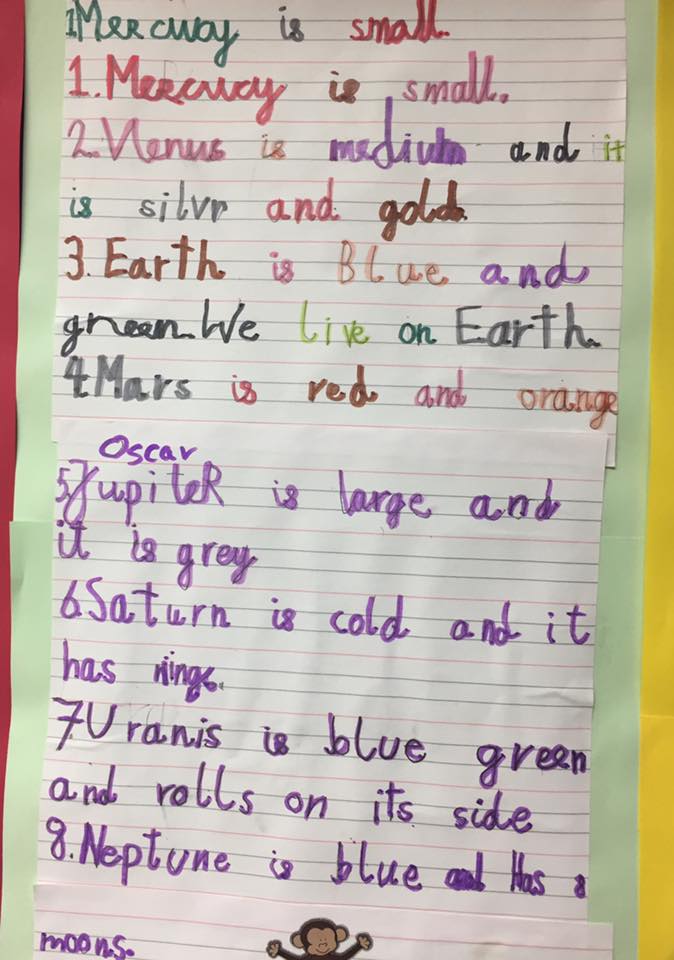 1Mercury is small.
1.Mercury is small.
2.Venus is medium and it
is silvr and gold.
3.Earth is Blue and
green.We live on Earth.
4.Mars is red and orange
Oscar
5.JupiteR is large and
it is grey
6.Saturn is cold and it
has rings.
7Uranis is blue green
and rolls on its side
8.Neptune is blue and Has 8
moons.